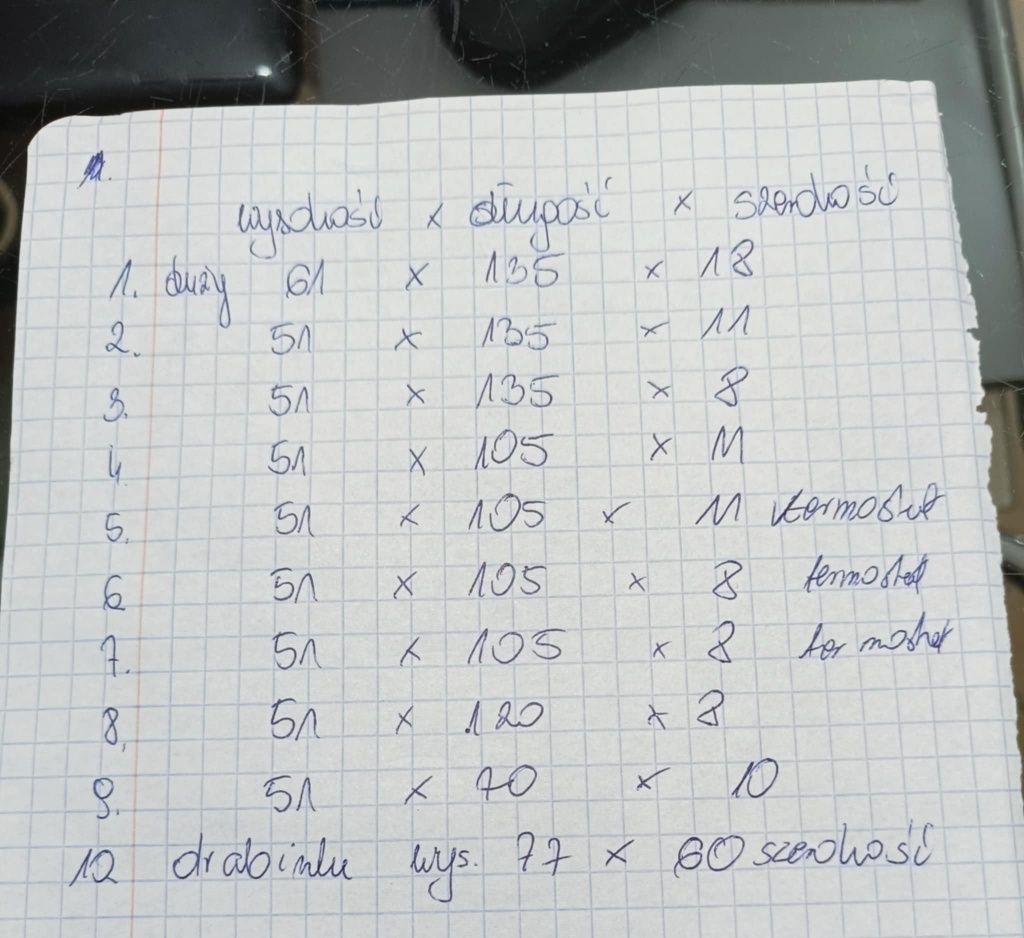 wysokość x długość x szerokość
1. duży 61 x 135 x 18
2. 51 x 135 x 11
3. 51 x 135 x 8
4. 51 x 105 x 11
5. 51 x 105 x 11 termostat
6 51 x 105 x 8 termostat
7. 51 x 105 x 8 termostat
8. 51 x 120 x 8
9. 51 x 70 x 10
10 drabinka wys. 77 x 60 szerokość